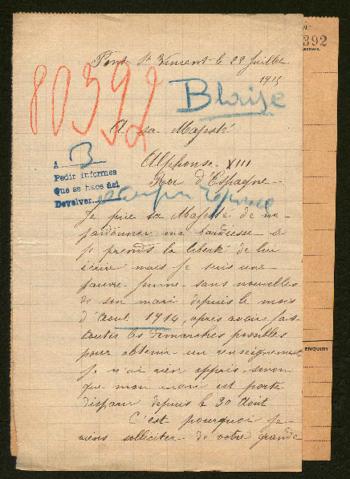 Pont St Vincent le 28 Juillet
1915
80392
Blaise
392
A sa Majesté
Alphonse XIII
Roi d'Espagne
A B
Pedir informes
Que se hace así
Devolver
Je prie sa Majesté de me
pardonner ma hardiesse si
je prends la liberté de lui
écrire mais je suis une
pauvre femme sans nouvelles
de son mari depuis le mois
d'Aout 1914, après avoir fait
toutes les demarches possibles
pour obtenir un renseignement
je n'ai rien appris sinon
que mon mari est porté
disparu depuis le 30 Aout
C'est pourquoi je
viens solliciter de votre grande